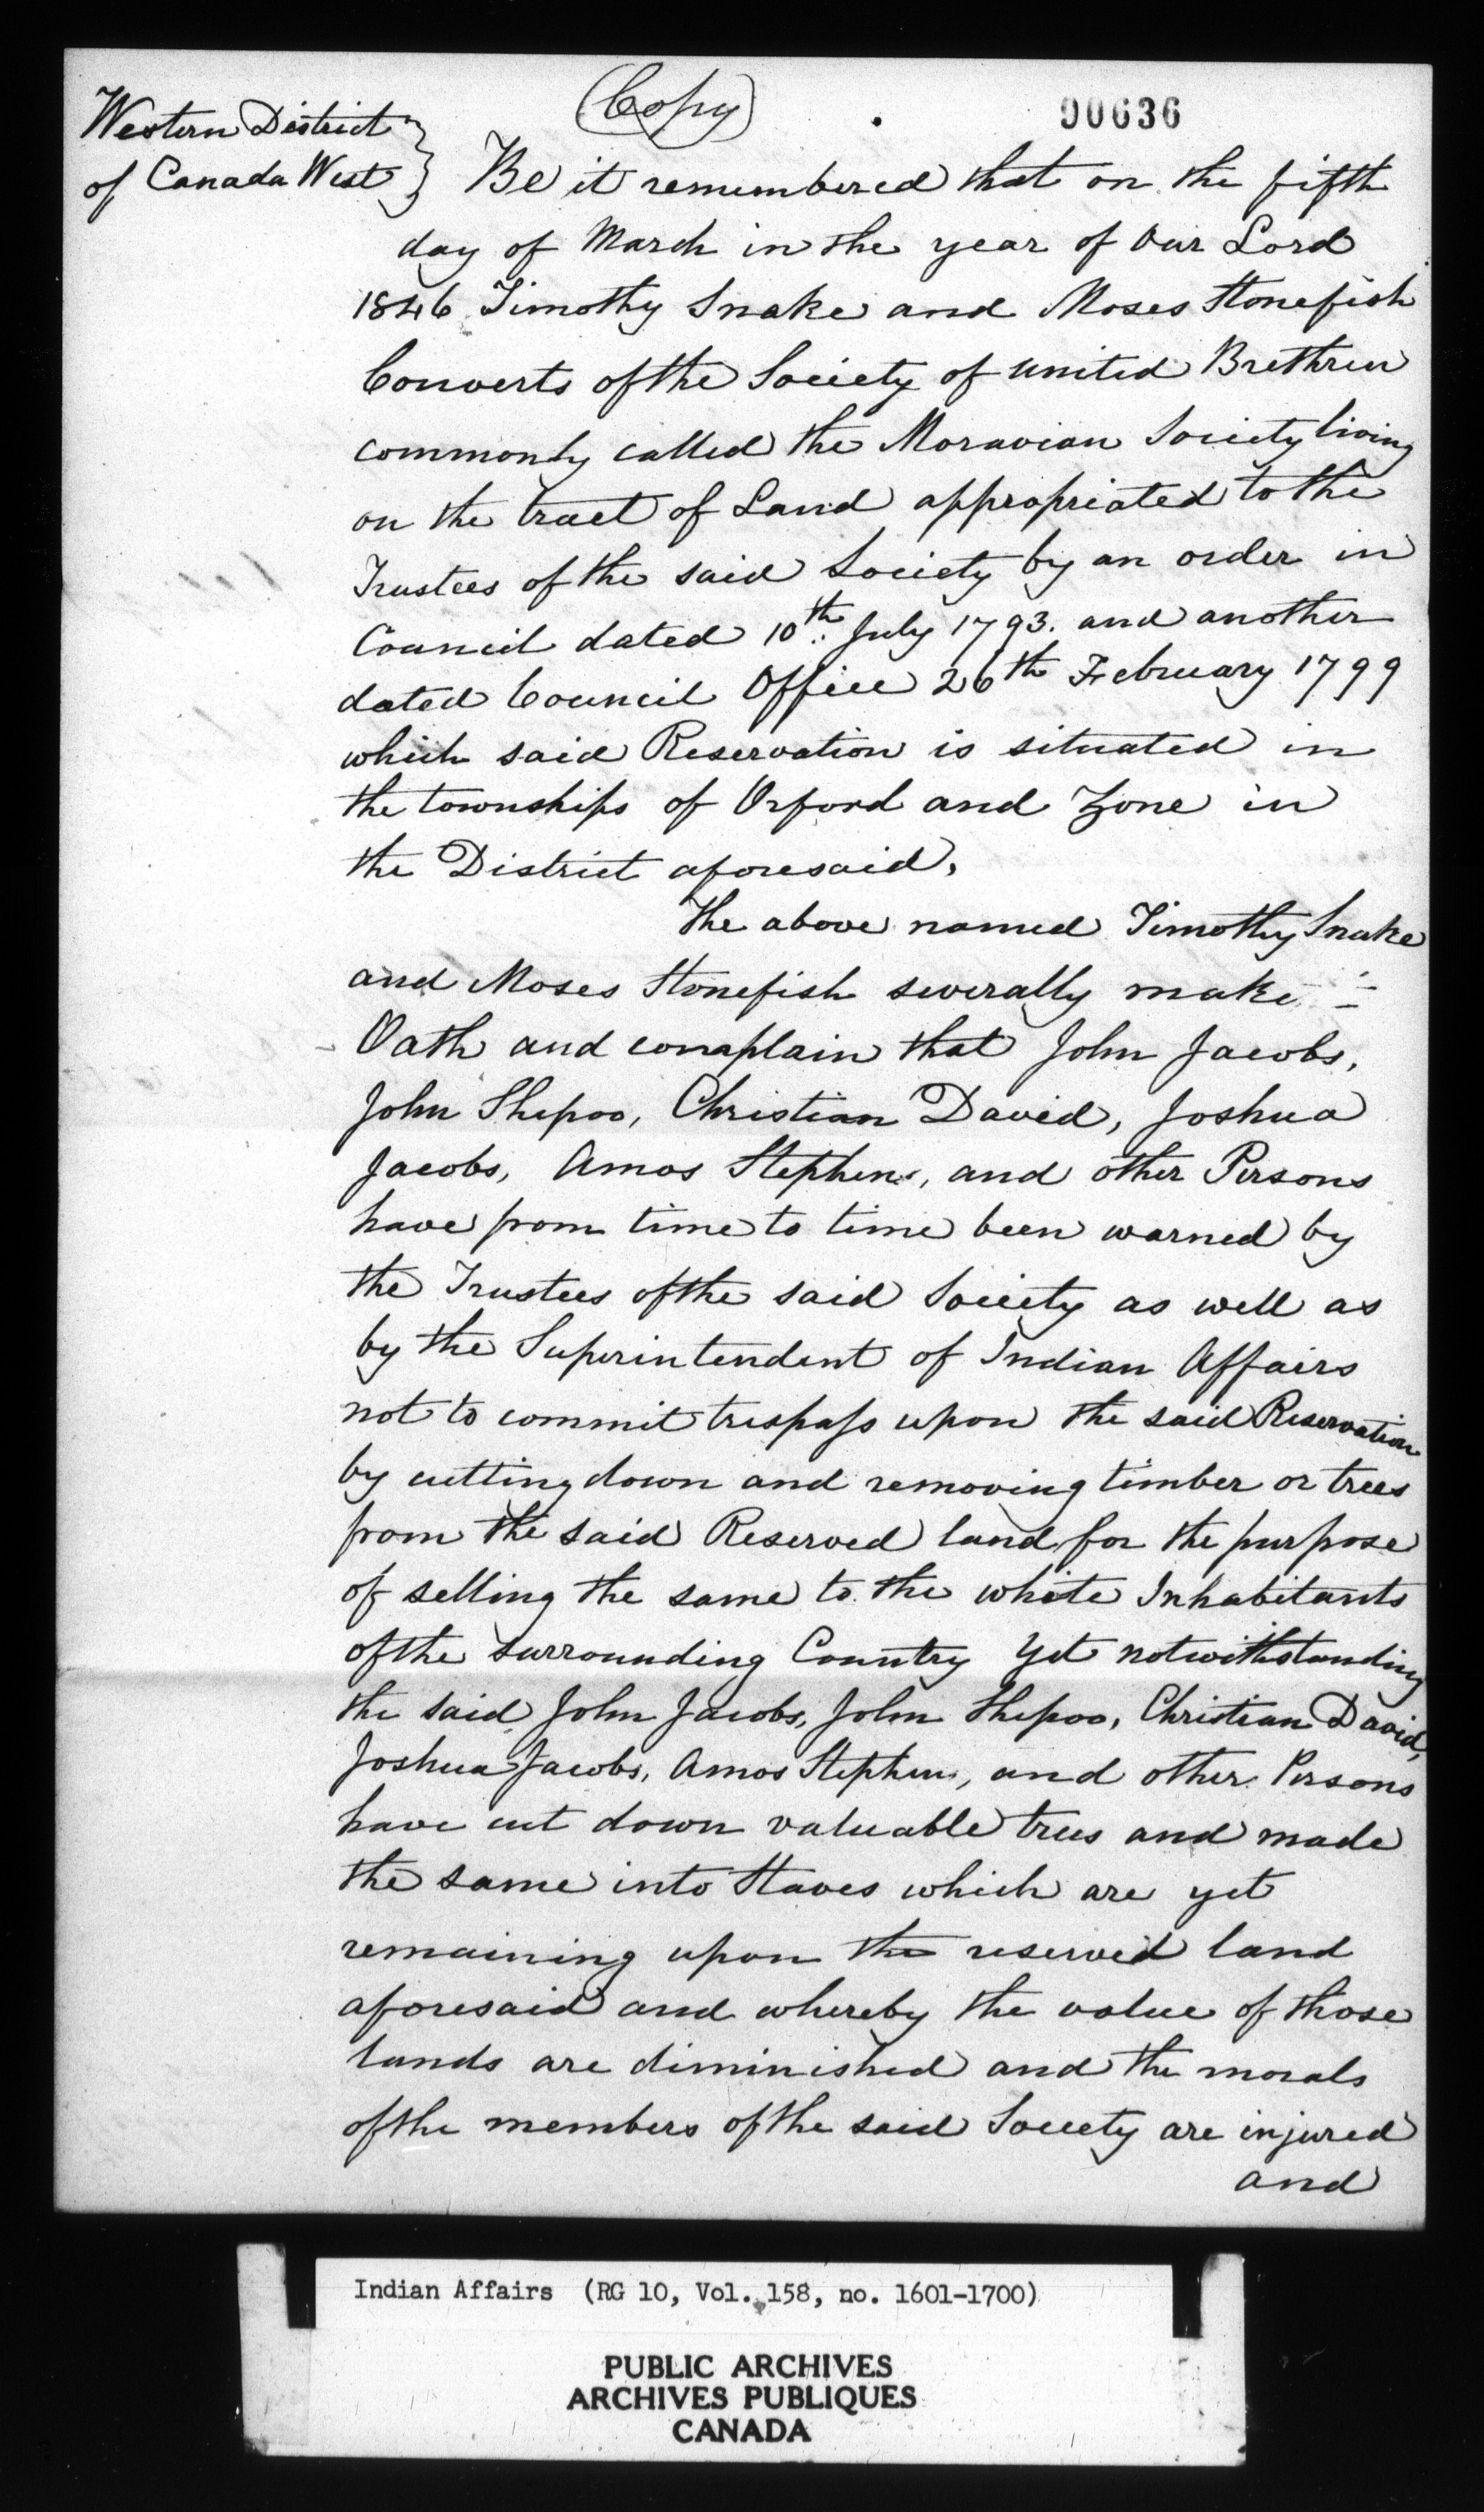 (Copy)
90636
Western District }
of Canada West } Be it remembered that on the fifth
day of March in the year of Our Lord
1846 Timothy Snake and Moses Stonefish
Converts of the Society of united Brethren
commonly called the Moravian Society living
on the tract of Land appropriated to the
Trustees of the said Society by an order in
Council dated 10th July 1793. and another
dated Council Office 26th February 1799
which said Reservation is situated in
the townships of Orford and Zone in
the District aforesaid,
The above named Timothy Snake
and Moses Stonefish severally make
Oath and complain that John Jacobs,
John Shepoo, Christian David, Joshua
Jacobs, Amos Stephens, and other Persons
have from time to time been warned by
the Trustees of the said Society as well as
by the Superintendent of Indian Affairs
not to commit trespass upon the said Reservation
by cutting down and removing timber or trees
from the said Reserved land for the purpose
of selling the same to the white Inhabitants
of the surrounding Country Yet notwithstanding
the said John Jacobs, John Shepoo, Christian David,
Joshua Jacobs, Amos Stephens, and other Persons
have cut down valuable trees and made
the same into Staves which are yet
remaining upon the reserved land
aforesaid and whereby the value of those
lands are diminished and the morals
of the members of the said Society are injured
and
Indian Affairs (RG 10, Vol. 158, no. 1601-1700)
PUBLIC ARCHIVES
ARCHIVES PUBLIQUES
CANADA